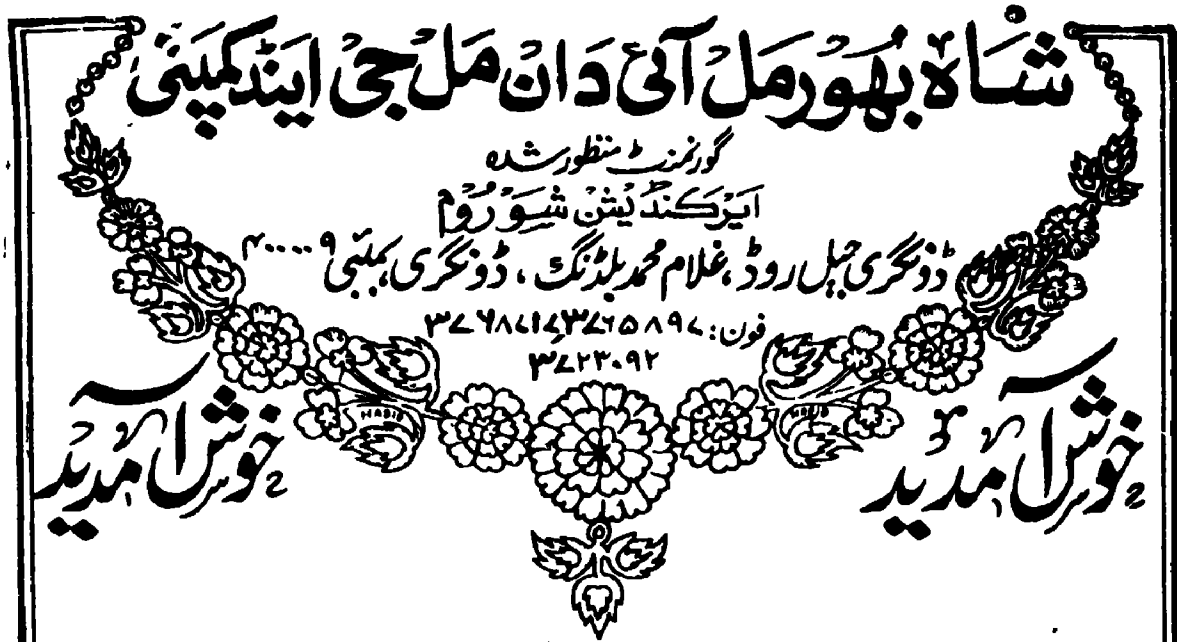 شاہ بھورمل آئی دان مل جی اینڈ کمپنی
گورنمنٹ منظور شدہ
ایرکنڈیشن شوروم
ڈونگری جیل روڈ، غلام محمد بلڈنگ، ڈونگری، بمبئی ۴۰۰۰۰۹
فون: ۳۷۶۵۸۹۷ ۳۷۶۸۷۱۲
۳۷۲۳۰۹۲
خوش آمدید
خوش آمدید
HABIB
HABIB